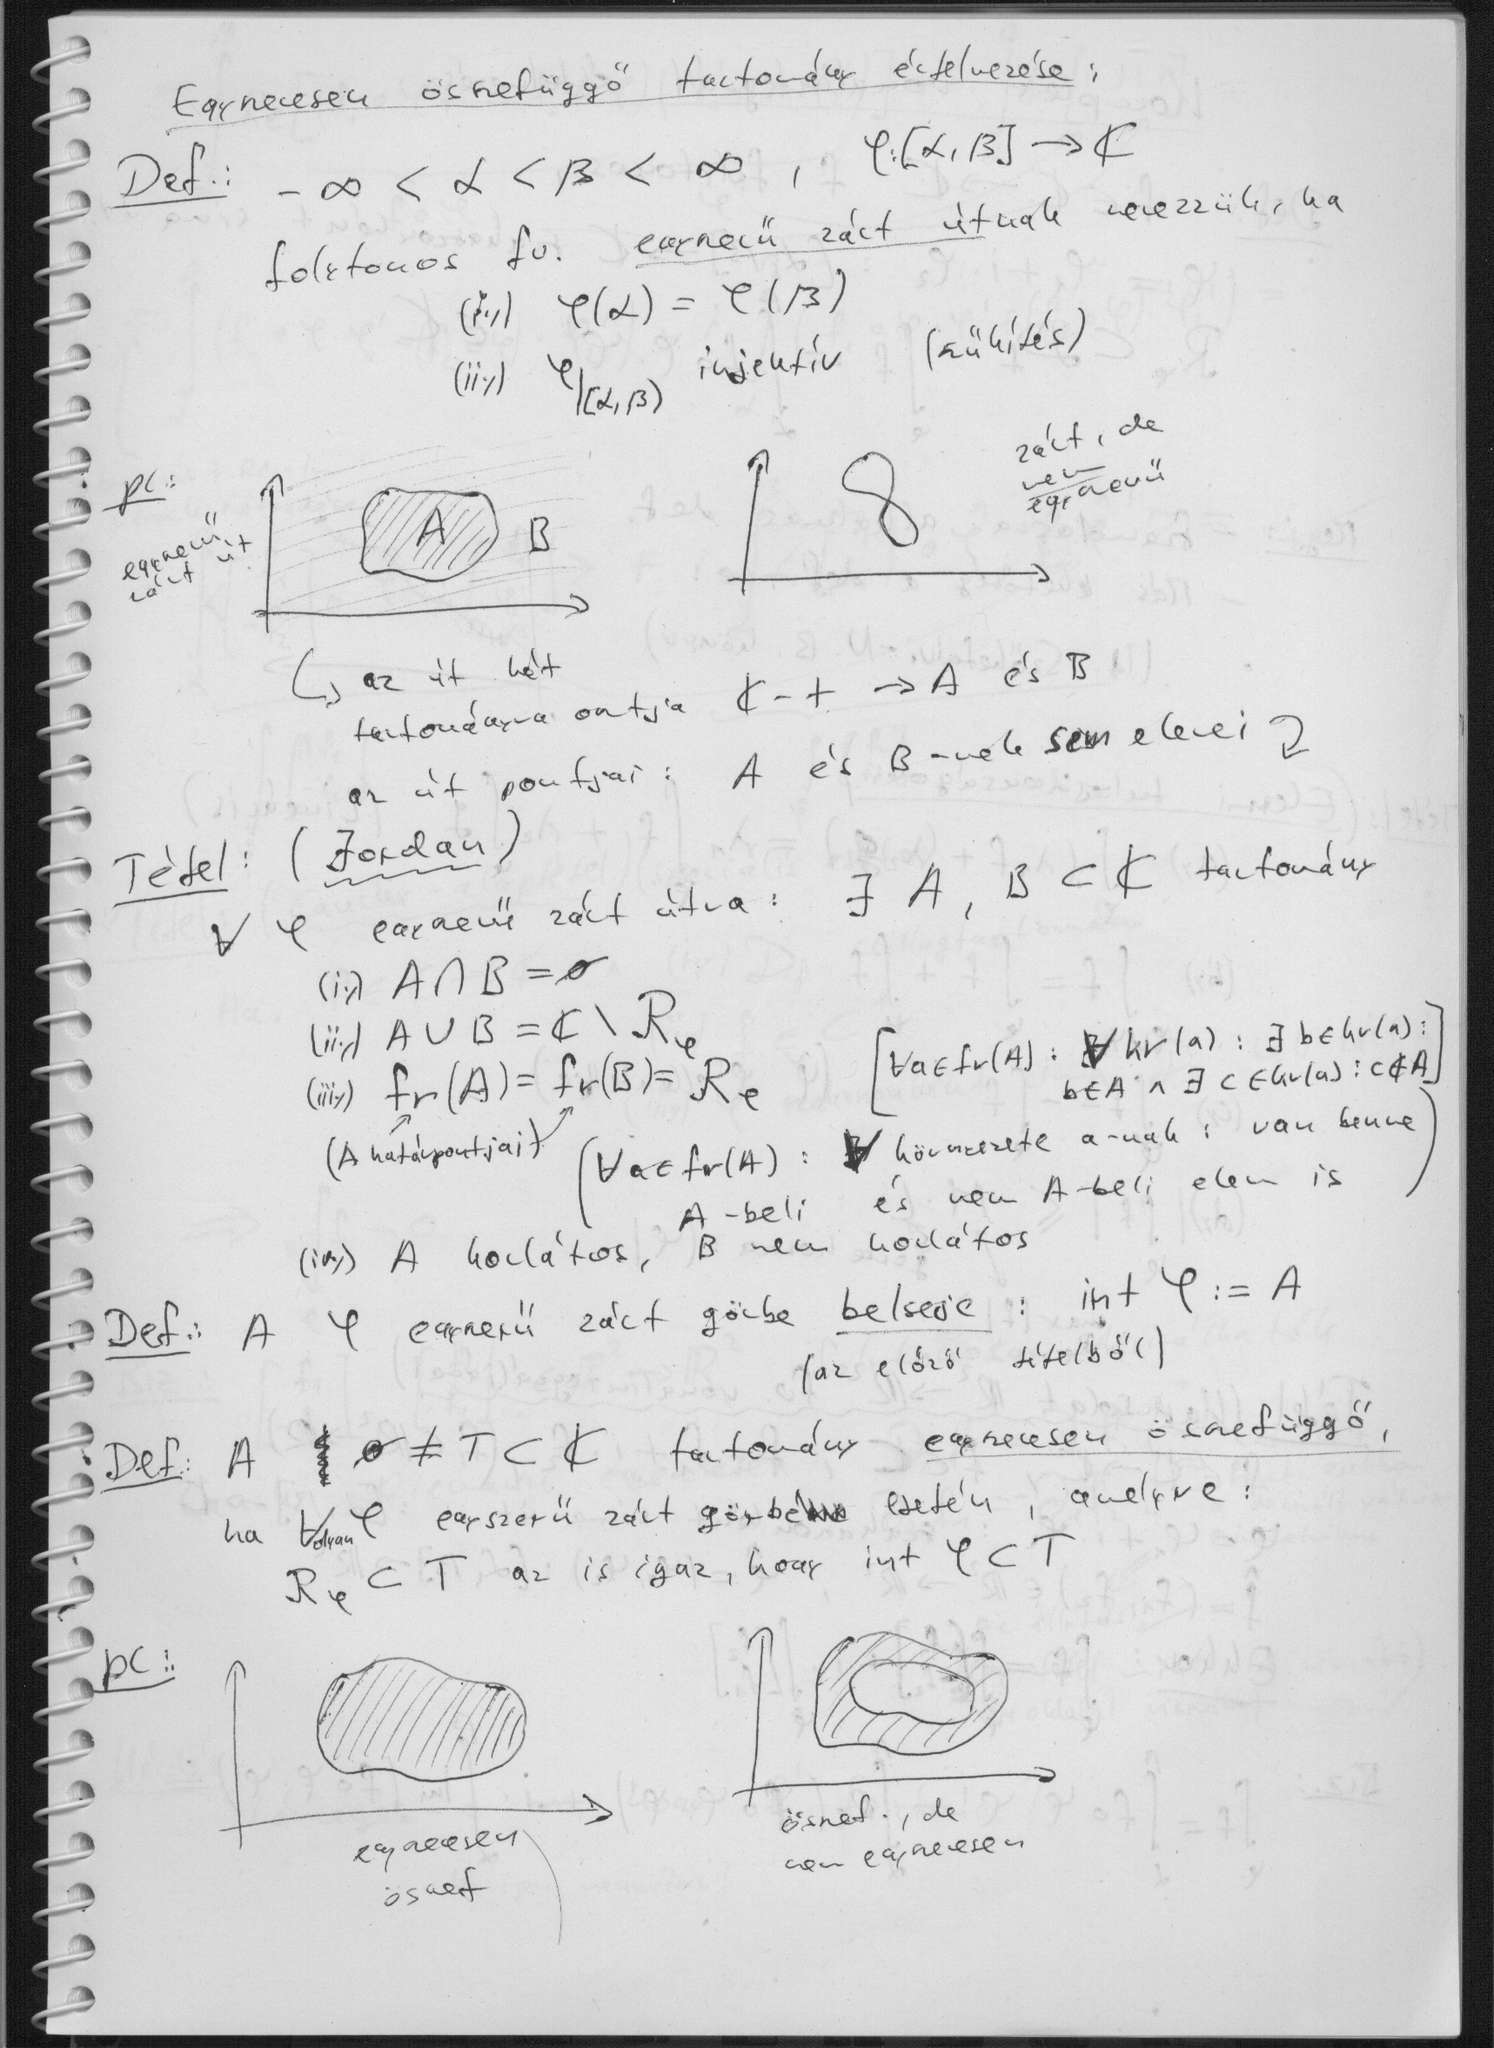 Egyszeresen összefüggő tartomány értelmezése:
Def.: -∞ < α < β < ∞, φ:[α,β] → ℂ
folytonos fv. egyszerű zárt útnak nevezzük, ha
(i.) φ(α) = φ(β)
(ii.) φ|[α,β) injektív (szűkítés)
pl.:
egyszerű zárt út
A
B
zárt, de
nem
egyszerű
↳ az út két
tartományra osztja ℂ-t → A és B
az út pontjai: A és B-nek sem elemei
Tétel: (Jordan)
∀ φ egyszerű zárt útra: ∃ A, B ⊂ ℂ tartomány
(i.) A ∩ B = ∅
(ii.) A ∪ B = ℂ \ R_φ
(iii.) fr(A) = fr(B) = R_φ
[∀a∈fr(A): ∀ kr(a): ∃ b∈kr(a):
b∈A ∧ ∃ c∈kr(a): c∉A]
(A határpontjai)
(∀a∈fr(A): ∀ környezete a-nak: van benne
A-beli és nem A-beli elem is)
(iv.) A korlátos, B nem korlátos
Def.: A φ egyszerű zárt görbe belseje: int φ := A
(az előző tételből)
Def.: A ∅ ≠ T ⊂ ℂ tartomány egyszeresen összefüggő,
ha ∀ olyan φ egyszerű zárt görbe esetén, amelyre:
R_φ ⊂ T az is igaz, hogy int φ ⊂ T
pl.:
egyszeresen
összef
összef., de
nem egyszeresen